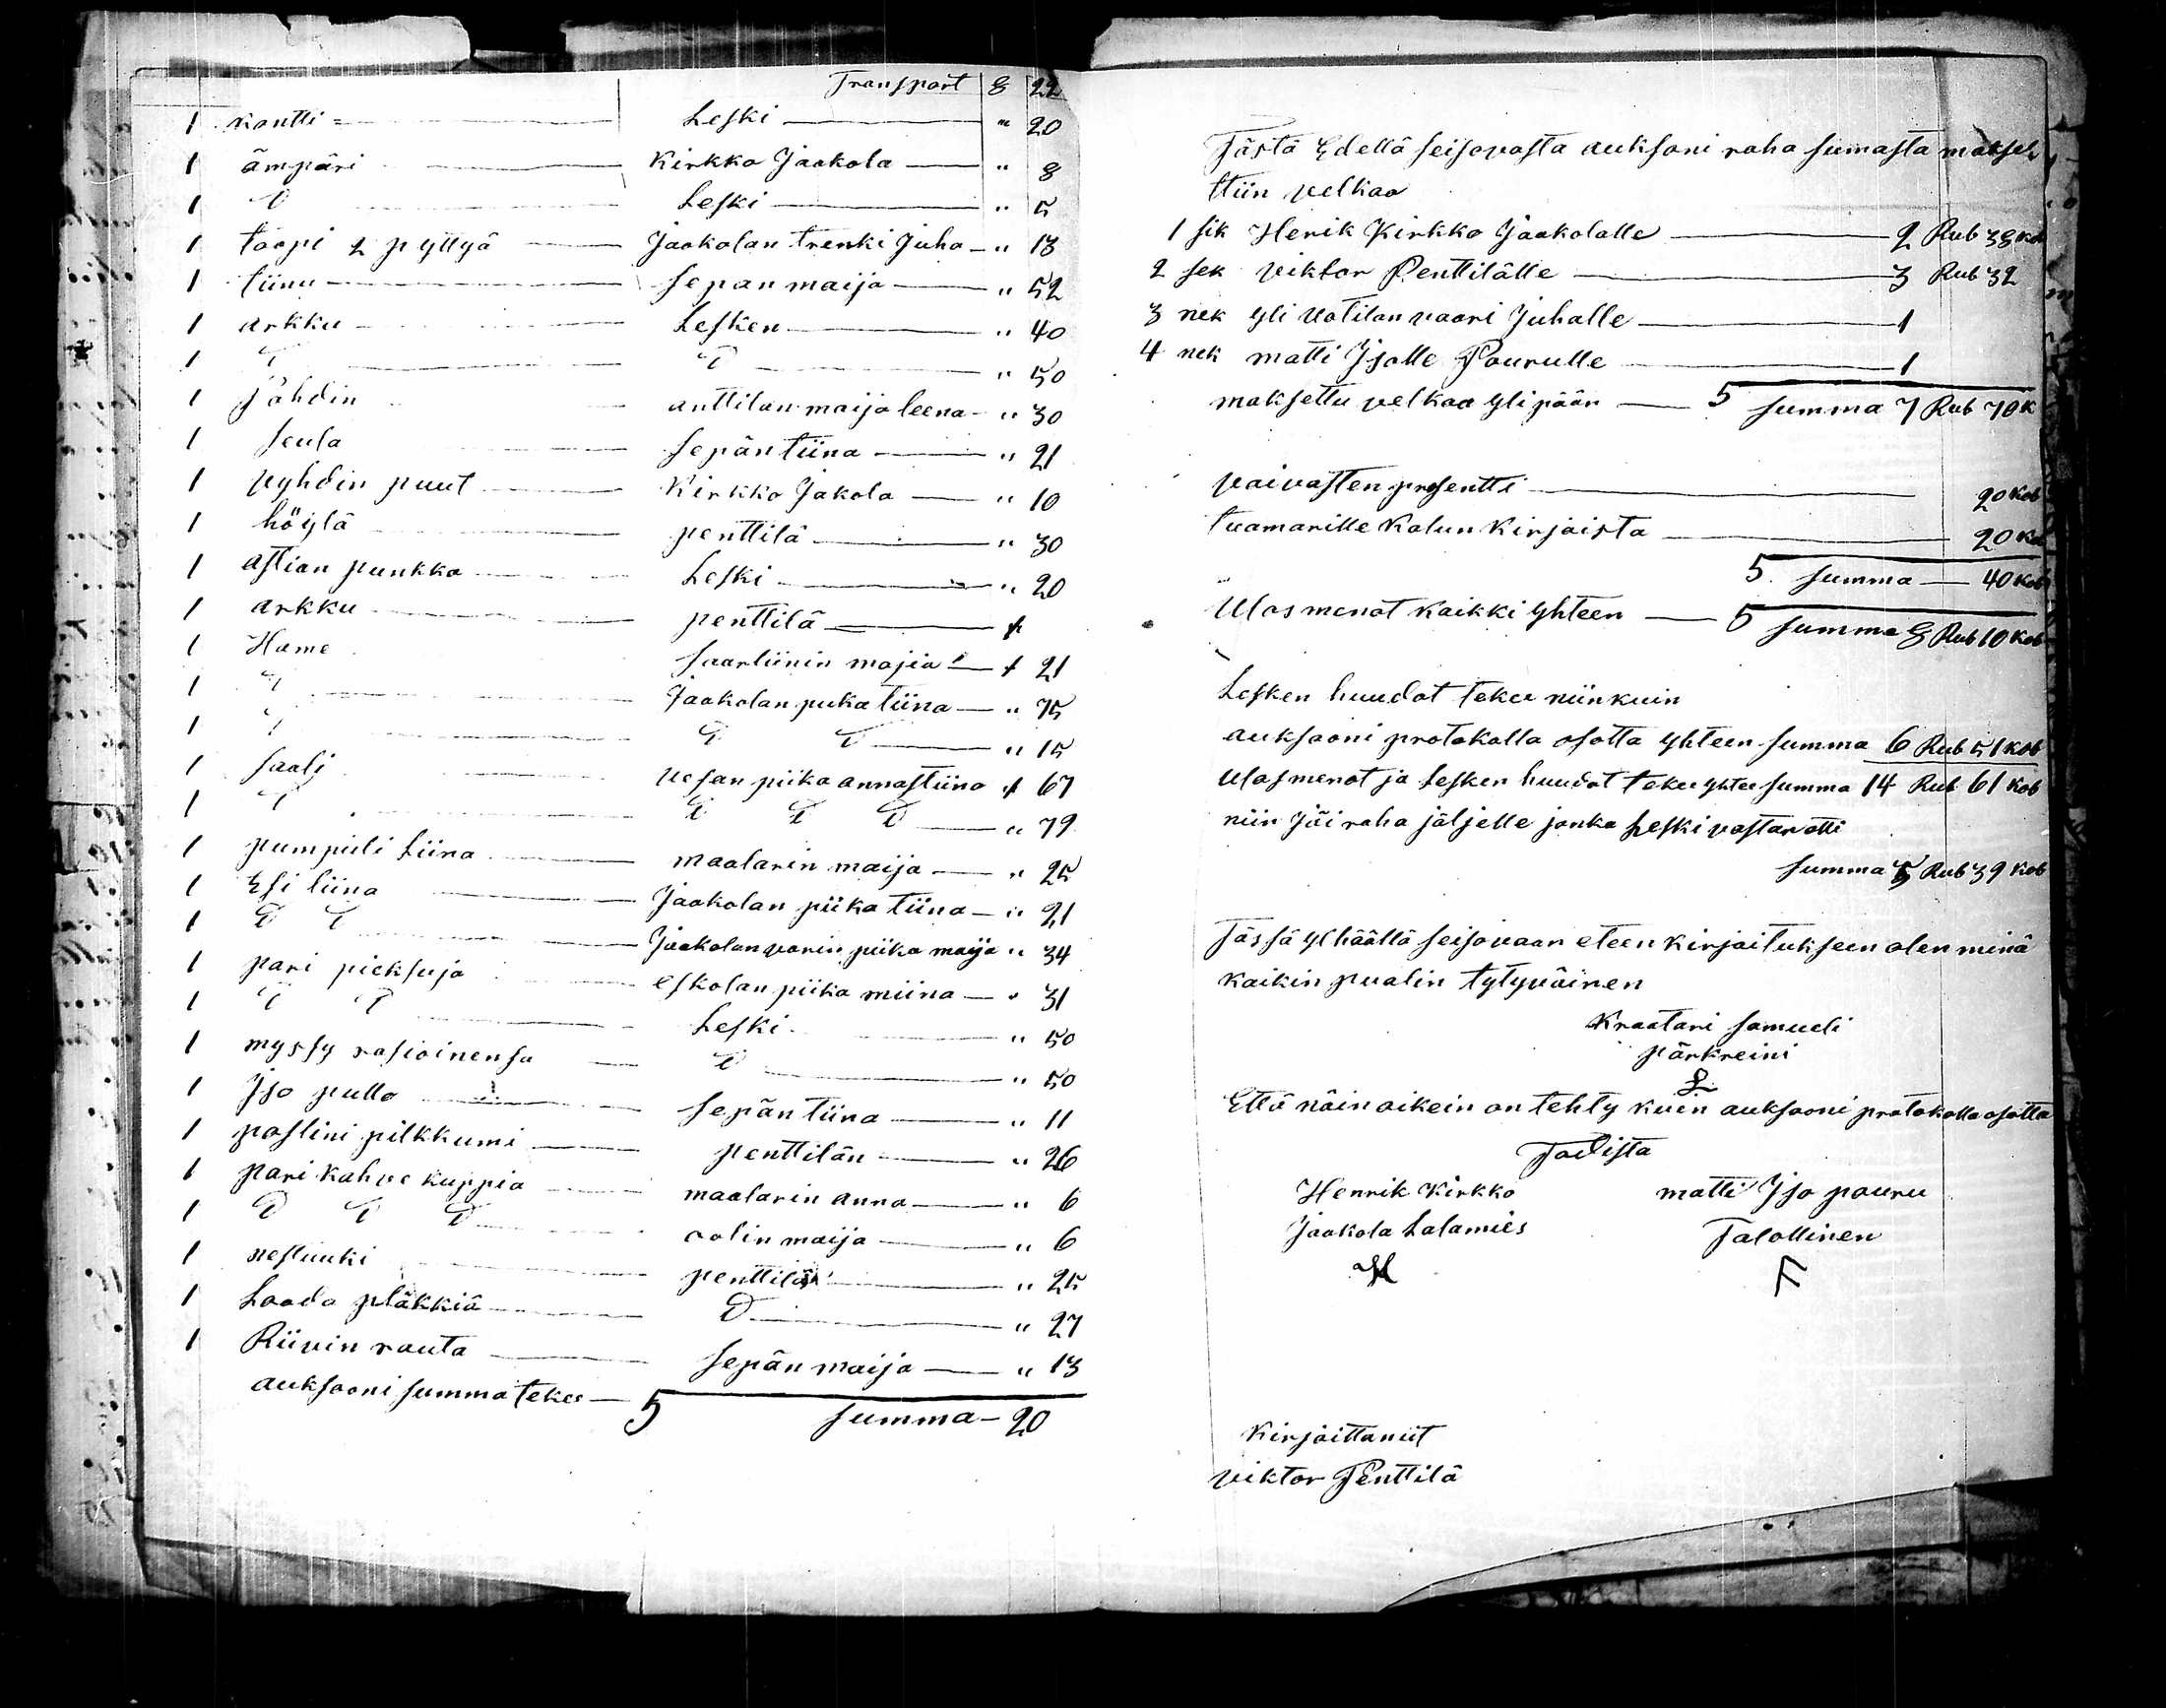 Transport 8 22
1 kontti = Leski " 20
1 ämpäri Kirkko Jaakola " 8
1 D Leski " 5
1 toopi 2 pyttyä Jaakolan trenki Juha " 13
1 tiinu sepan maija " 52
1 arkku Lesken " 40
1 D D " 50
1 Jähdin anttilan maija leena " 30
1 seula sepän tiina " 21
1 vyhdin puut Kirkko Jakola " 10
1 höylä penttilä " 30
1 astian punkka Leski " 20
1 arkku penttilä 1
1 Hame saarliinin majia 1 21
1 D Jaakolan puka tiina " 75
1 D D D " 15
1 saali vesan piika annastiina 1 67
1 D D D D " 79
1 pumpuli Liina maalarin maija " 25
1 Esi liina Jaakolan piika tiina " 21
1 D D Jaakolan varin piika maija " 34
1 pari pieksuja eskolan piika miina " 31
1 D D Leski " 50
1 myssy rasioinensa D " 50
1 Jso pullo sepän tiina " 11
1 poslini pilkkumi penttilän " 26
1 pari kahve kuppia maalarin anna " 6
1 D D D oolin maija " 6
1 nestuuki penttilän " 25
1 Laada pläkkiä D " 27
1 Riivin rauta sepän maija " 13
auksooni summa tekee 5 summa 20
Tästä Edellä seisovasta auksoni raha sumasta maksel
ttiin velkaa
1 sik Henik Kirkko Jaakolalle 2 Rub 38 ko
2 sek viktor Penttilälle 3 Rub 32
3 nek yli Uotilan vaari Juhalle 1
4 nek matti Jsolle Pourulle 1
maksettu velkaa ylipään 5 summa 7 Rub 70 k
vaivasten prosentti 20 kob
tuamarille Kalun Kirjaista 20 ko
5 summa 40 kob
Ulos menot kaikki yhteen 5 summa 8 Rub 10 kob
Lesken huudot tekee niinkuin
auksooni protokolla osotta yhteen summa 6 Rub 51 kob
Ulosmenot ja Lesken huudot tekee yhtee summa 14 Rub 61 kob
niin Jäi raha jäljelle jonka Leski vastan otti
summa 5 Rub 39 kob
Tässä ylhäällä seisovaan eteen kirjoitukseen olen minä
kaikin pualin tytyväinen
Kraatari samueli
pärkreini
Että näin oikein on tehty kuin auksooni protokolla osotta
Todista
Henrik Kirkko matti Jso pouru
Jaakola Lalamies Talollinen
Kirjoittanut
viktor Penttilä